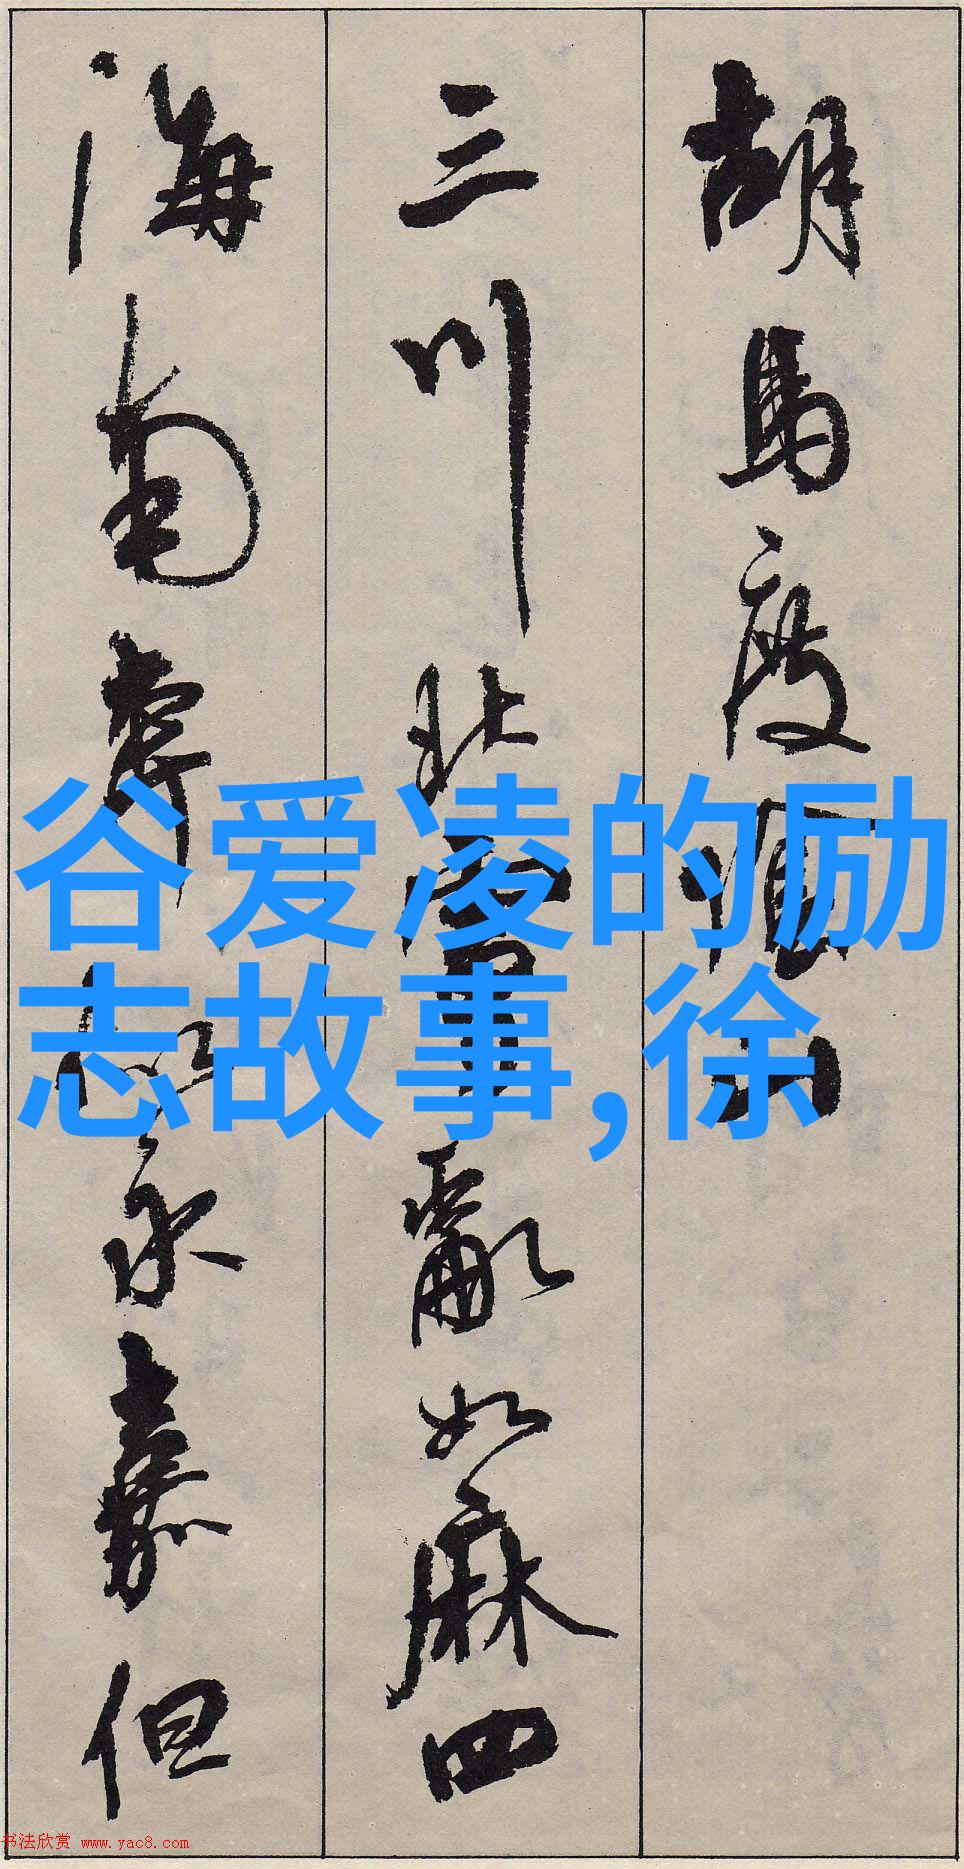 胡馬度陰山
三川北虜亂如麻四
海南奔似永嘉但
谷爱凌的励
志故事,徐
书法欣赏 www.yac8.com